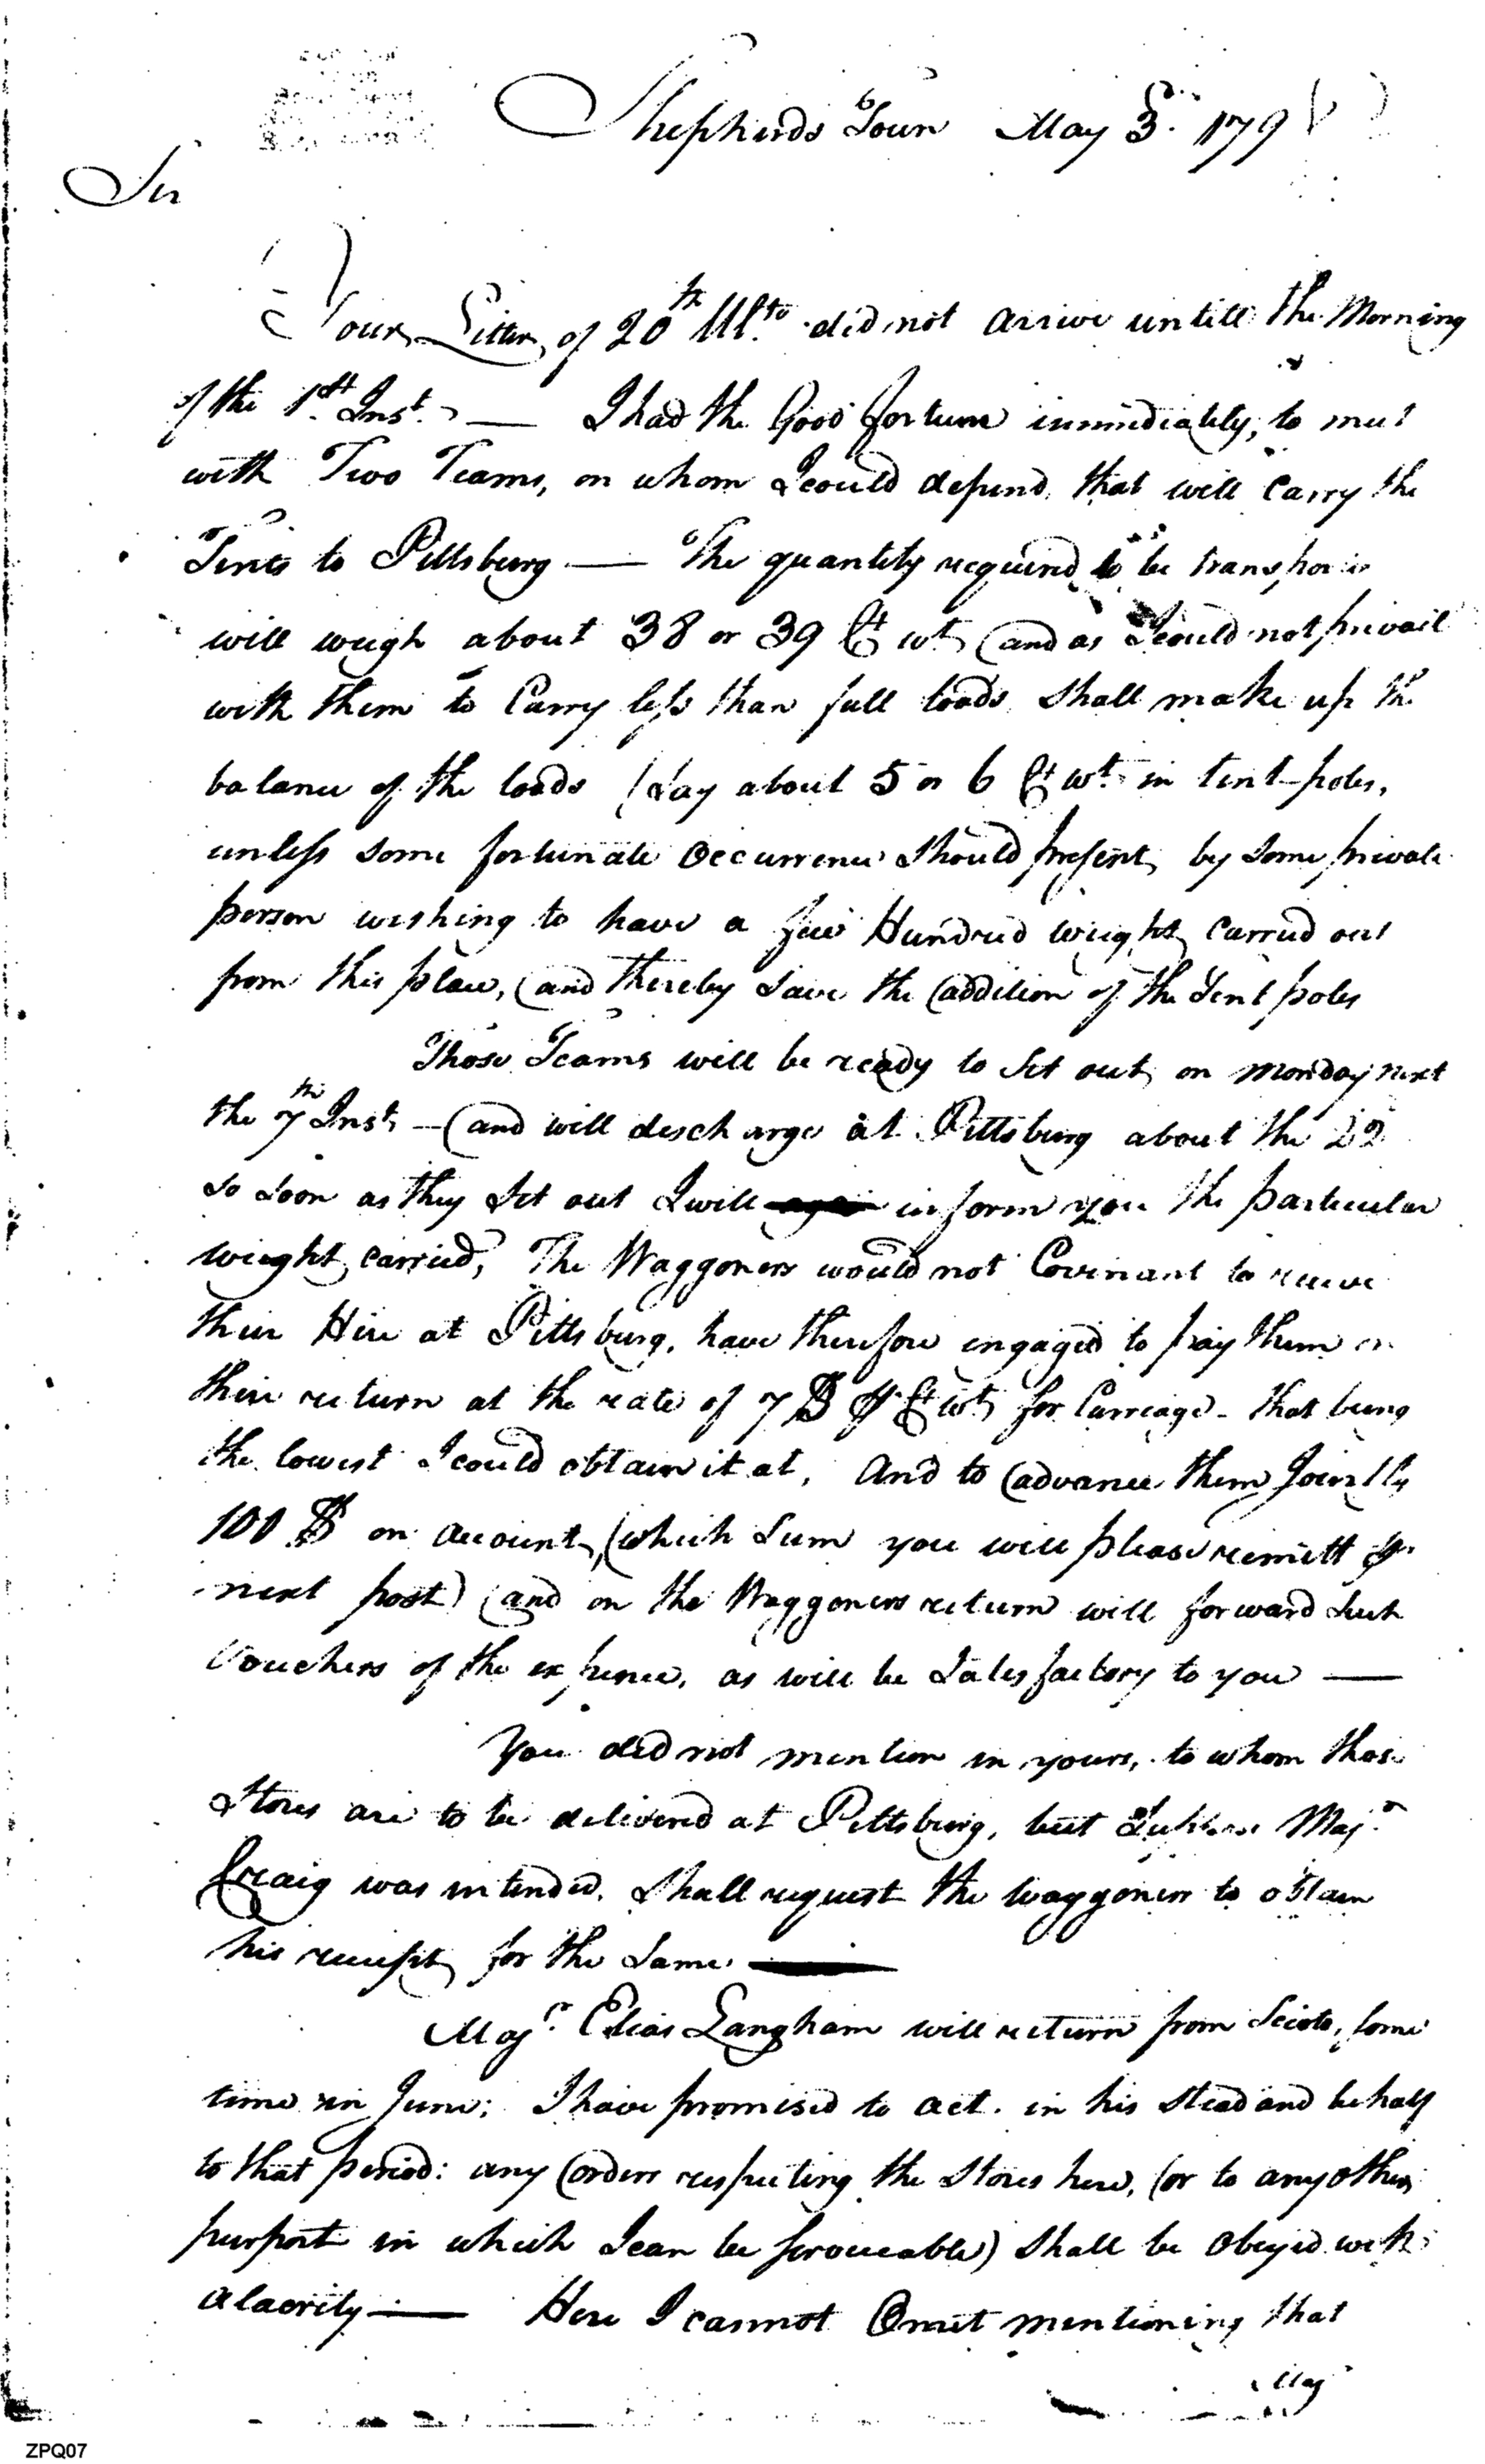 Shepherds Town May 3d. 179
Sir
Your Letter of 20th Ulto. did not arrive untill the Morning
of the 1st. Inst. — I had the Good fortune immediately, to meet
with Two Teams, on whom I could depend, that will Carry the
Tents to Pittsburg — The quantity required to be transported
will weigh about 38 or 39 Ct wt, and as I could not prevail
with them to Carry less than full loads, shall make up the
balance of the loads (Say about 5 or 6 Ct wt. in tent-poles,
unless some fortunate Occurrence should present, by some private
person wishing to have a few Hundred weight, Carried out
from this place, and thereby save the addition of the Tent poles
Those Teams will be ready to Set out, on Monday next
the 7th Inst. — and will discharge at Pittsburg about the 22
So soon as they Set out I will inform you the particular
weight carried, The Waggoners would not Covenant to receive
their Hire at Pittsburg, have therefore engaged to pay them on
their return at the rate of 7 $ ⅌ Ct wt, for Carriage - that being
the lowest I could obtain it at, And to advance them Jointly
100 $ on account, (which Sum you will please remitt ⅌r
next post) and on the Waggoners return will forward Such
Vouchers of the expence, as will be Satisfactory to you —
You did not mention in yours, to whom those
Stores are to be delivered at Pittsburg, but Suppose Majr.
Craig was intended, Shall request the Waggoners to obtain
his receipt, for the Same —
Majr. Elias Langham will return from Scioto, some
time in June; I have promised to act in his stead and behalf
to that period: any orders respecting the Stores here, (or to any other
purport in which I can be serviceable) Shall be Obeyed with
alacrity — Here I cannot Omit mentioning that
Maj
ZPQ07